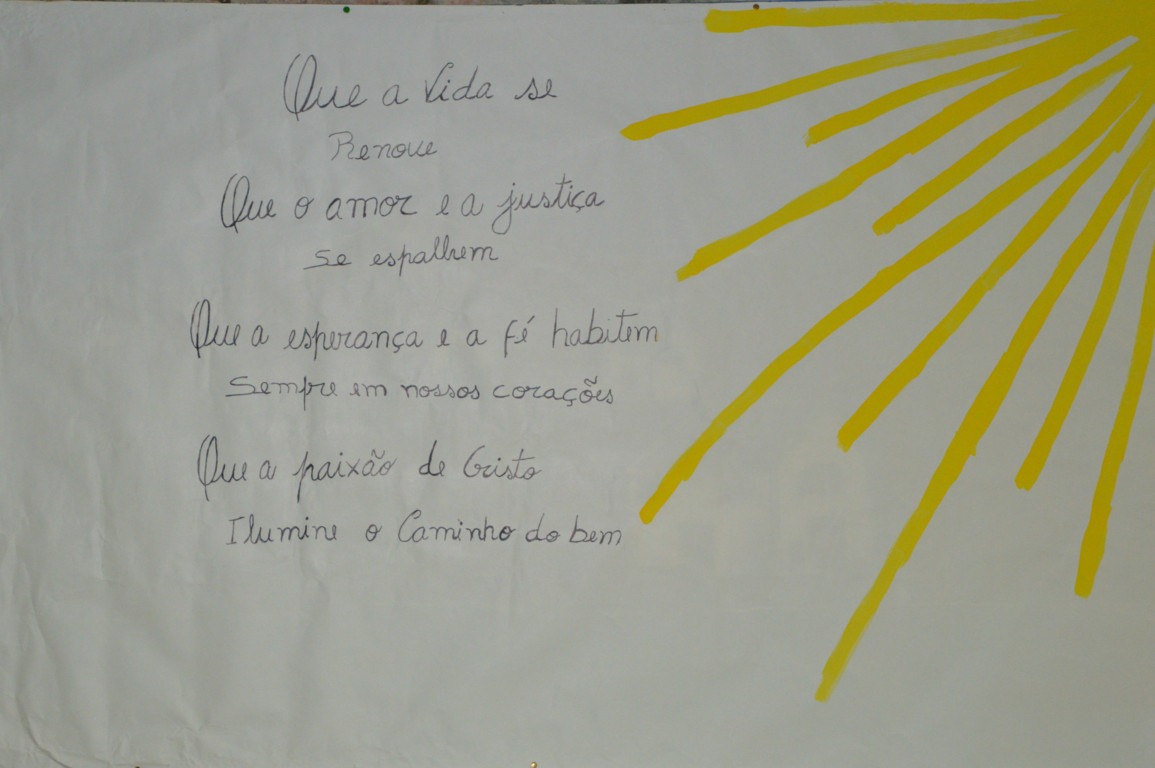 Que a Vida se
Renove
Que o amor e a justiça
se espalhem
Que a esperança e a fé habitem
Sempre em nossos corações
Que a paixão de Cristo
Ilumine o Caminho do bem